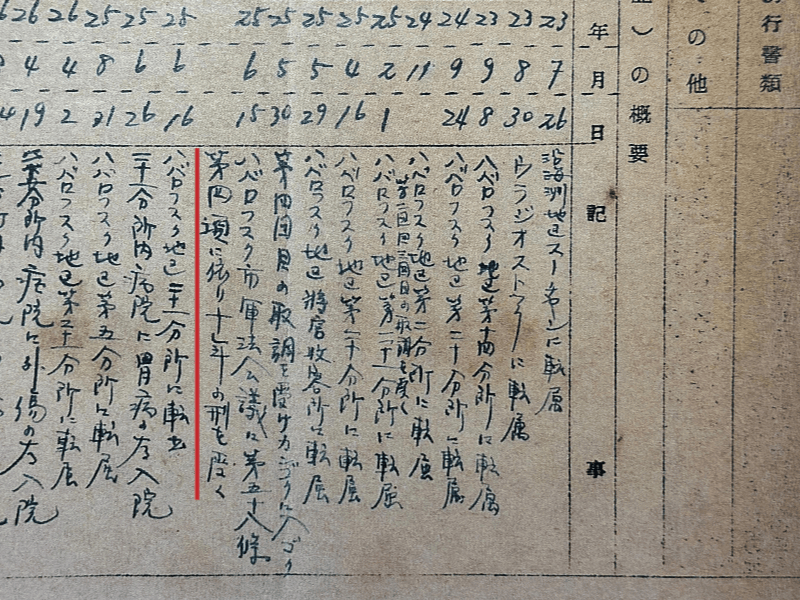 行書類
の他
)の概要
年月日 記事
23 7 26 沿海洲地区スーチャンに転属
23 8 30 ウラジオストックに転属
23 9 8 ハバロフスク地区第十四分所に転属
24 9 24 ハバロフスク地区第二十分所に転属
24 11 ハバロフスク地区第二分所に転属
第二回三回目の取調を受く
25 2 1 ハバロフスク地区第二十一分所に転属
25 4 16 ハバロフスク地区第二十分所に転属
25 5 29 ハバロフスク地区将官収容所に転属
25 5 30 第四回目の取調を受けカンゴクに入ゴク
25 6 15 ハバロフスク市軍法会議に第五十八條
第四項に依り 年の刑を受く
25 6 16 ハバロフスク地区二十一分所に転出
25 6 26 二十一分所内病院に胃病の為入院
25 8 21 ハバロフスク地区第五分所に転属
26 4 2 ハバロフスク地区第二十一分所に転属
26 4 19 分所内病院に外傷の為入院